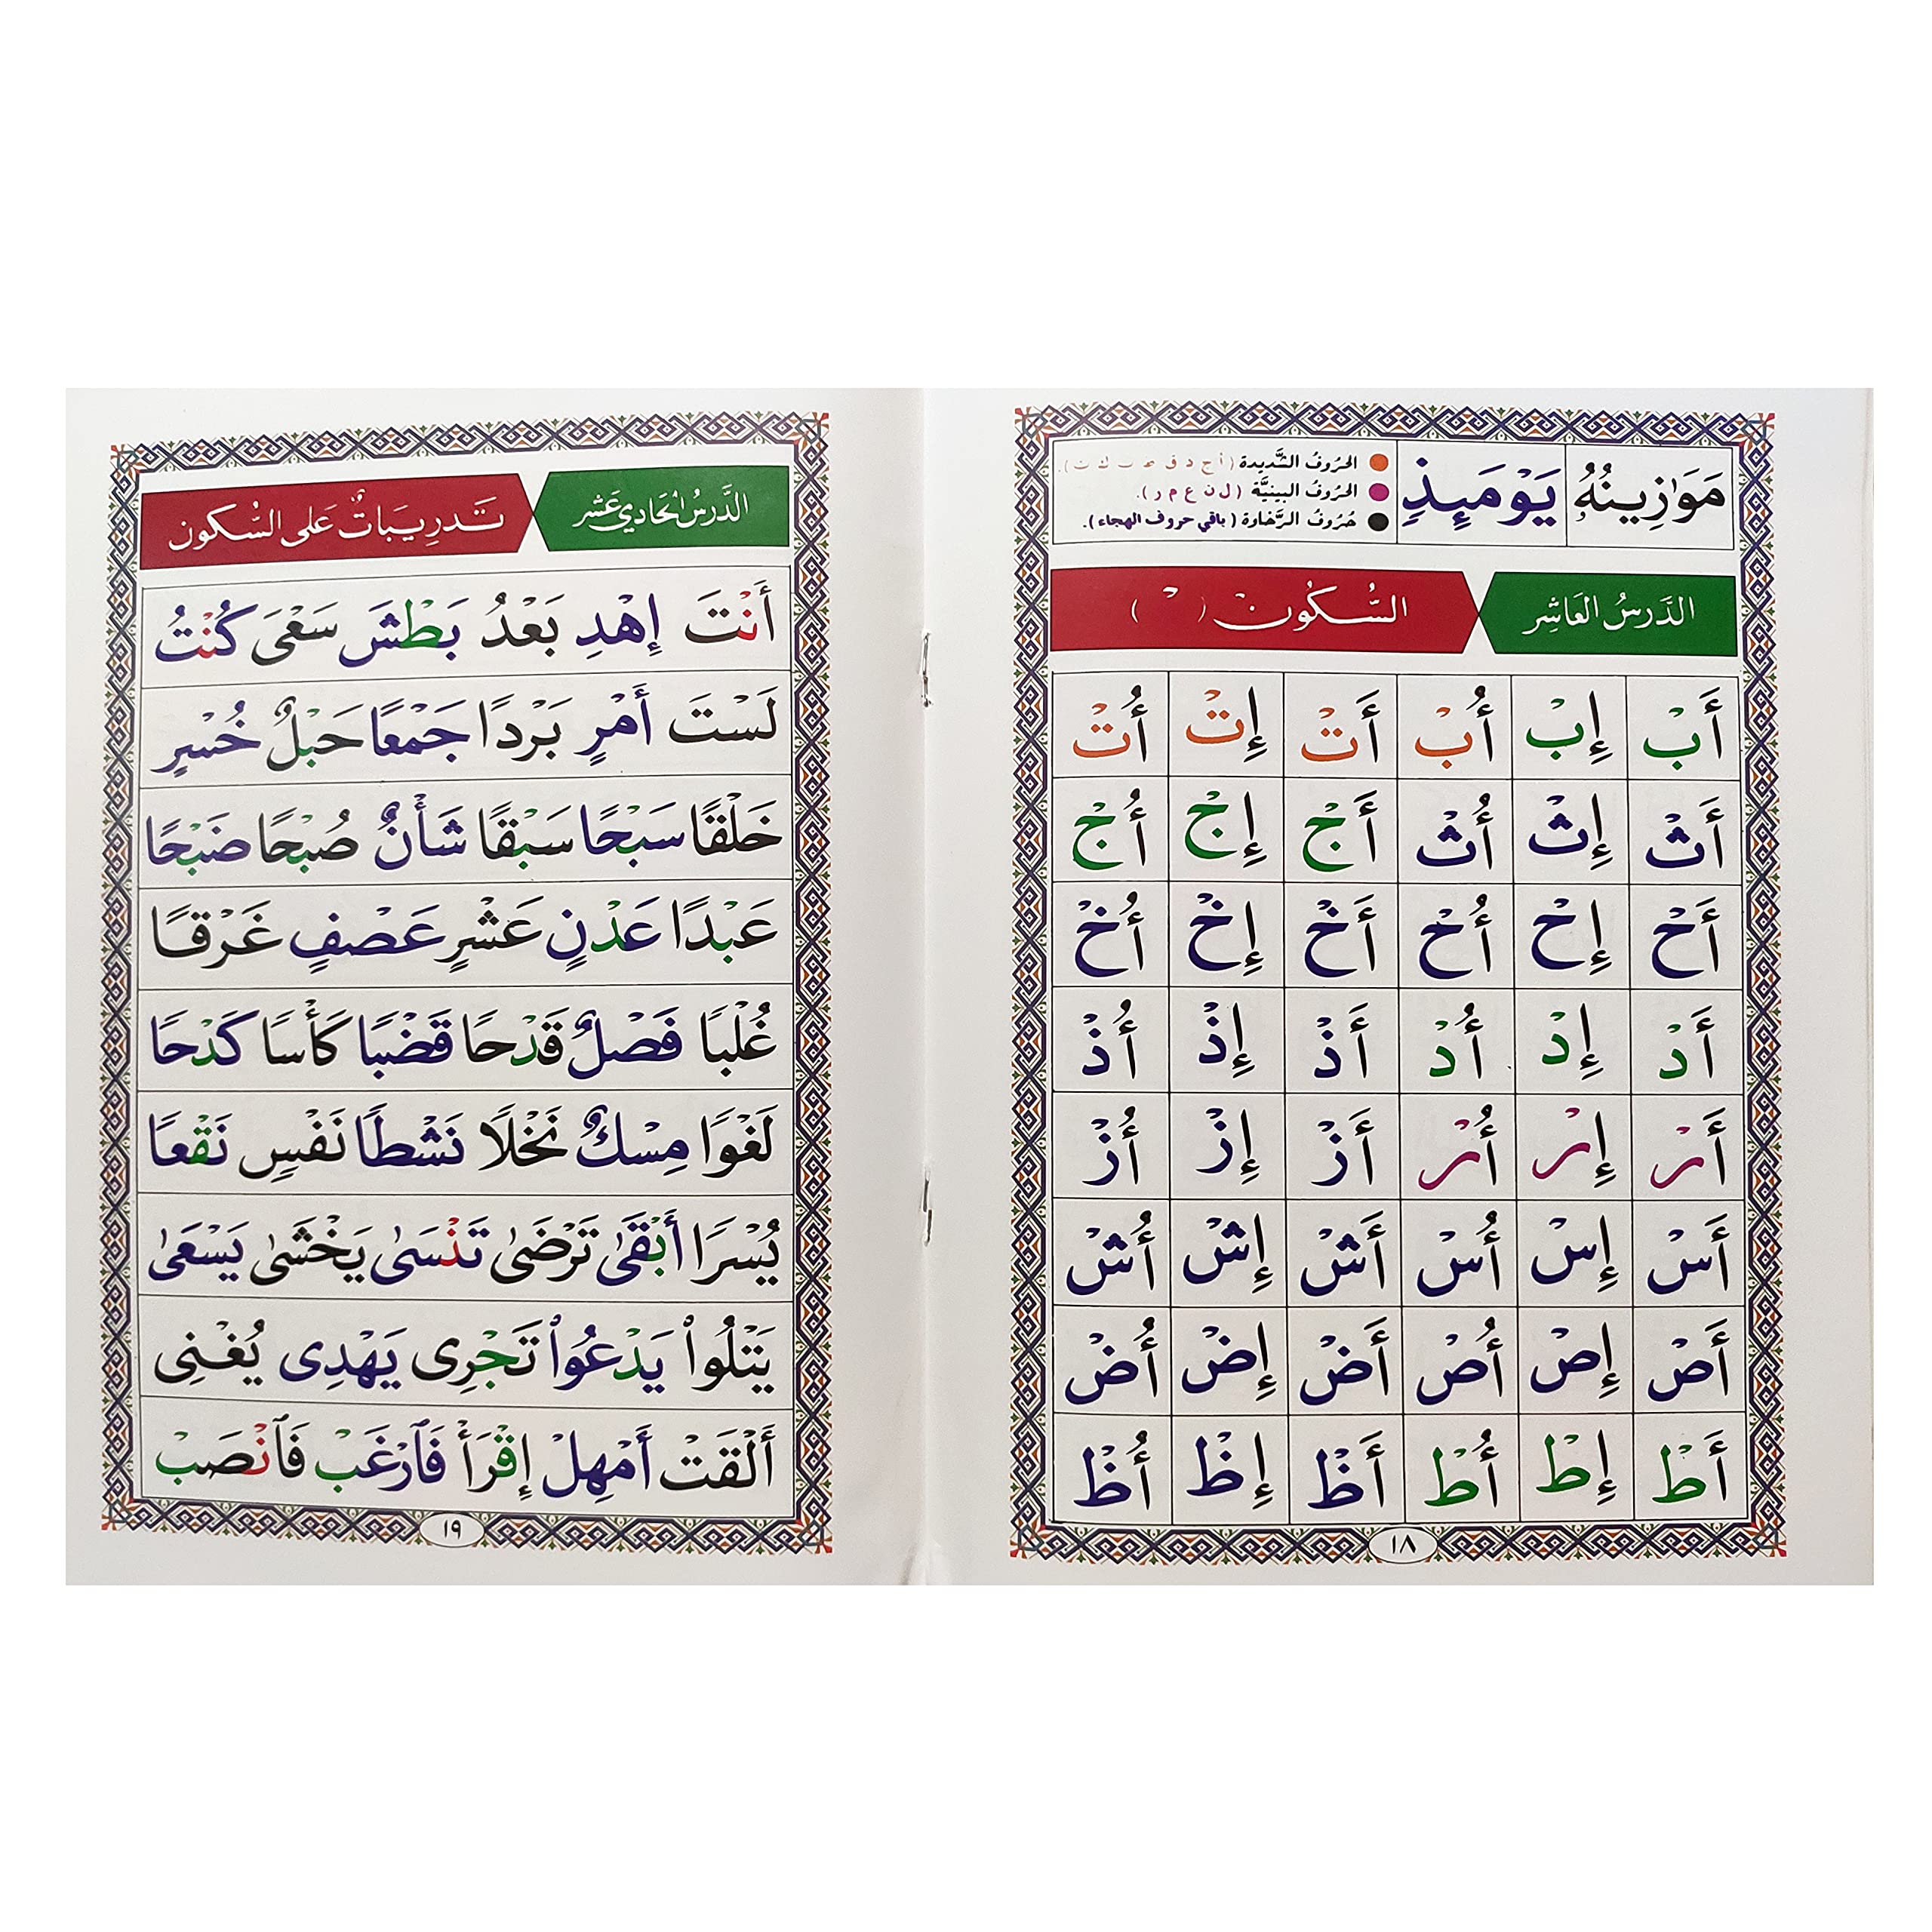 مَوَٰزِينُهُۥ يَوْمَئِذٍ
الحُرُوفُ الشَّدِيدة ( أ ج د ق ط ب ك ت ).
الحُرُوفُ البينيَّة ( ل ن ع م ر ).
حُرُوفُ الرَّخاوة ( باقي حروف الهجاء ).
الدَّرسُ العَاشِر السُّكُون ( ـْ )
أَبْ إِبْ أُبْ أَتْ إِتْ أُتْ
أَثْ إِثْ أُثْ أَجْ إِجْ أُجْ
أَحْ إِحْ أُحْ أَخْ إِخْ أُخْ
أَدْ إِدْ أُدْ أَذْ إِذْ أُذْ
أَرْ إِرْ أُرْ أَزْ إِزْ أُزْ
أَسْ إِسْ أُسْ أَشْ إِشْ أُشْ
أَصْ إِصْ أُصْ أَضْ إِضْ أُضْ
أَطْ إِطْ أُطْ أَظْ إِظْ أُظْ
١٨
الدَّرسُ الحَادِي عَشَر تَدرِيبَاتٌ عَلى السُّكون
أَنْتَ إِهْدِ بَعْدُ بَطْشَ سَعْىَ كُنْتُ
لَسْتَ أَمْرٍ بَرْدًا جَمْعًا حَبْلٌ خُسْرٍ
خَلْقًا سَبْحًا سَبْقًا شَأْنٌ صُبْحًا ضَبْحًا
عَبْدًا عَدْنٍ عَشْرٍ عَصْفٍ غَرْقًا
غُلْبًا فَصْلٌ قَدْحًا قَضْبًا كَأْسًا كَدْحًا
لَغْوًا مِسْكٌ نَخْلًا نَشْطًا نَفْسٍ نَقْعًا
يُسْرًا أَبْقَىٰ تَرْضَىٰ تَنْسَىٰ يَخْشَىٰ يَسْعَىٰ
يَتْلُوا۟ يَدْعُوا۟ تَجْرِى يَهْدِى يُغْنِى
أَلْقَتْ أَمْهِلْ إِقْرَأْ فَٱرْغَبْ فَٱنْصَبْ
١٩